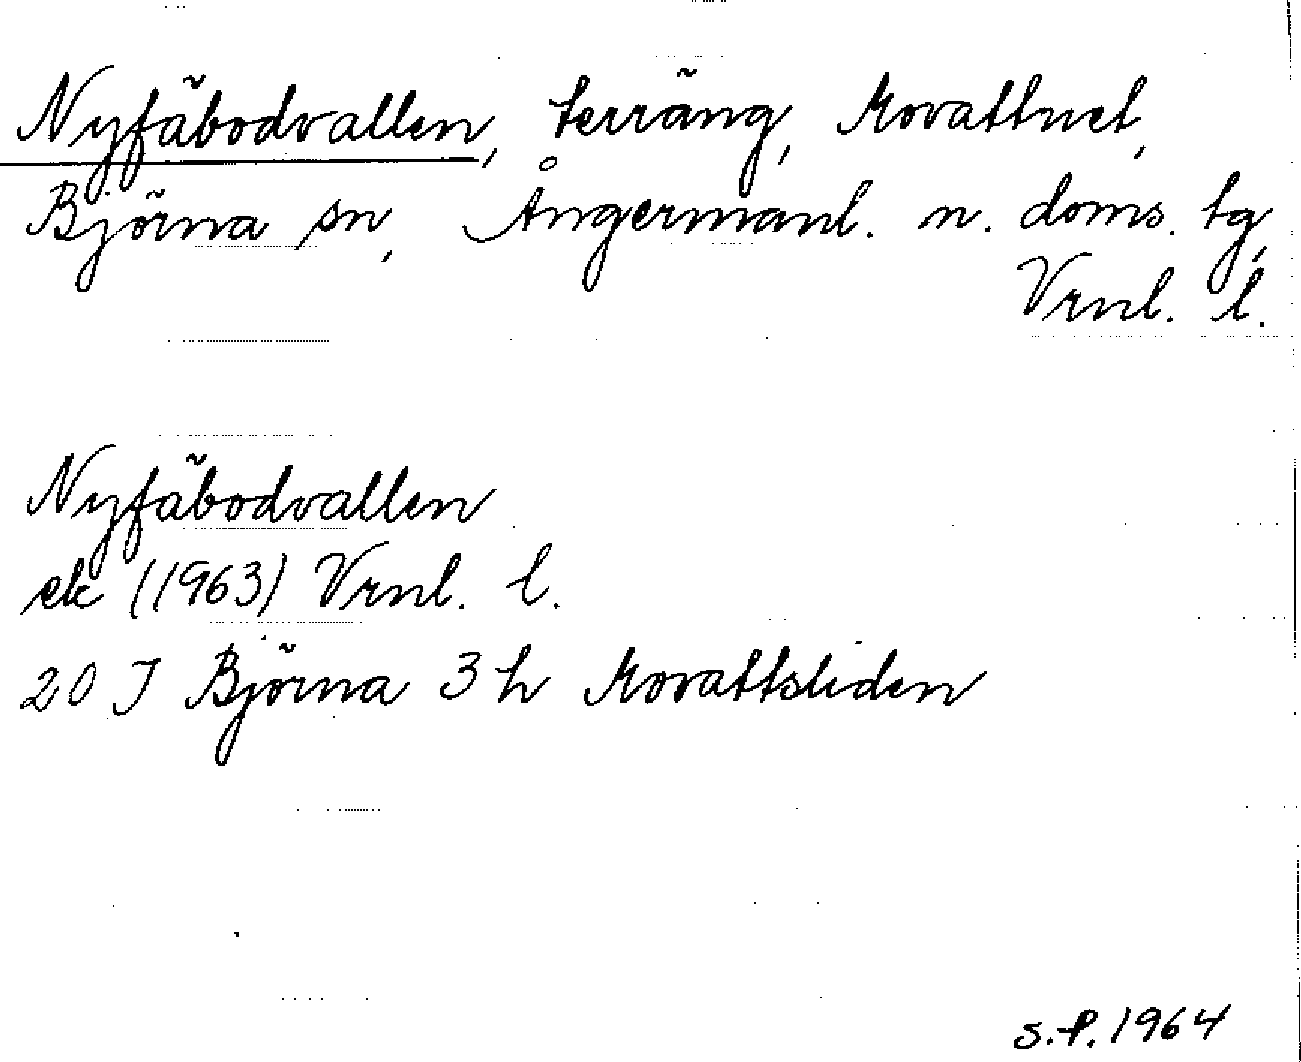 Nyfäbodvallen, terräng, Movattnet,
Björna sn, Ångermanl. n. doms. tg,
Vrnl. l.
Nyfäbodvallen
ek (1963) Vrnl. l.
20 J Björna 3 h Movattsliden
S.P. 1964